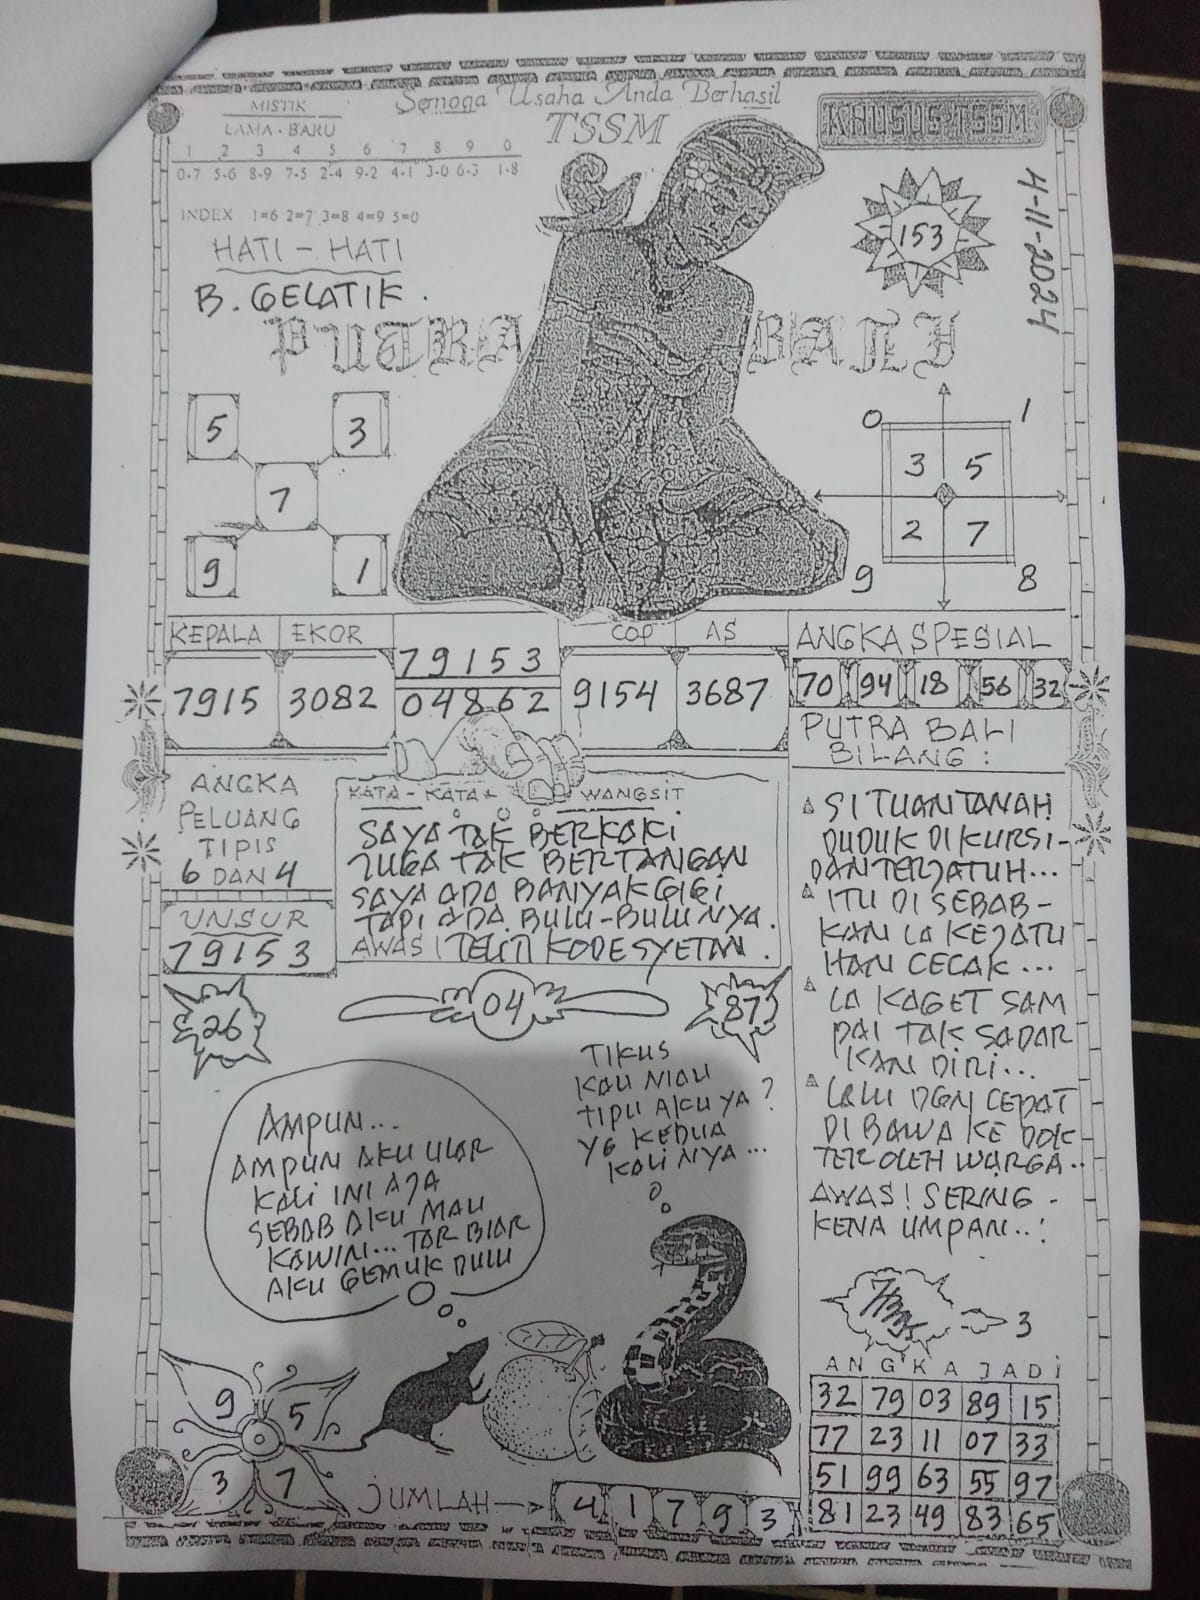 Semoga Usaha Anda Berhasil
TSSM
KHUSUS TSSM
MISTIK
LAMA - BARU
1 2 3 4 5 6 7 8 9 0
0-7 5-6 8-9 7-5 2-4 9-2 4-1 3-0 6-3 1-8
INDEX 1=6 2=7 3=8 4=9 5=0
HATI - HATI
B. GELATIK.
153
4-11-2024
PUTRA BALI
5 3
7
9 1
0 1
3 5
2 7
9 8
KEPALA EKOR COP AS
7915 3082
79153
04862
9154 3687
ANGKA SPESIAL
70 94 18 56 32
PUTRA BALI
BILANG :
SI TUAN TANAH
DUDUK DI KURSI-
DAN TERJATUH...
ITU DI SEBAB-
KAN LA KEJATU
HAN CECAK...
LA KAGET SAM
PAI TAK SADAR
KAN DIRI...
LALU DGN CEPAT
DI BAWA KE DOK
TER OLEH WARGA..
AWAS! SERING -
KENA UMPAN..!
ANGKA
PELUANG
TIPIS
6 DAN 4
UNSUR
79153
KATA - KATA WANGSIT
SAYA TAK BERKAKI
JUGA TAK BERTANGAN
SAYA ADA BANYAK GIGI
TAPI ADA BULU-BULU NYA.
AWAS! TELITI KODE SYETAN.
26
04
87
AMPUN...
AMPUN AKU ULAR
KALI INI AJA
SEBAB AKU MAU
KAWIN... TAR BIAR
AKU GEMUK DULU
TIKUS
KAU MAU
TIPU AKU YA?
YG KEDUA
KALI NYA...
3
ANGKA JADI
32 79 03 89 15
77 23 11 07 33
51 99 63 55 97
81 23 49 83 65
9 5
3 7
JUMLAH
4 1 7 9 3